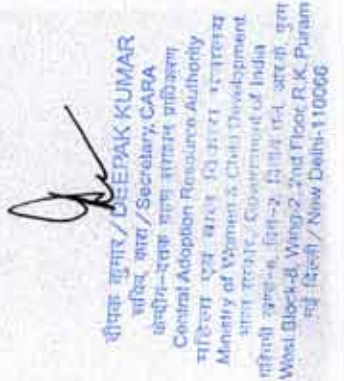 दीपक कुमार / DEEPAK KUMAR
सचिव, कारा / Secretary, CARA
केन्द्रीय-दत्तक ग्रहण संसाधन प्राधिकरण
Central Adoption Resource Authority
महिला एवं बाल विकास मंत्रालय
Ministry of Women & Child Development
भारत सरकार / Government of India
पश्चिमी खण्ड-8, विंग-2, आर.के. पुरम
West Block-8, Wing-2, 2nd Floor, R.K. Puram
नई दिल्ली / New Delhi-110066